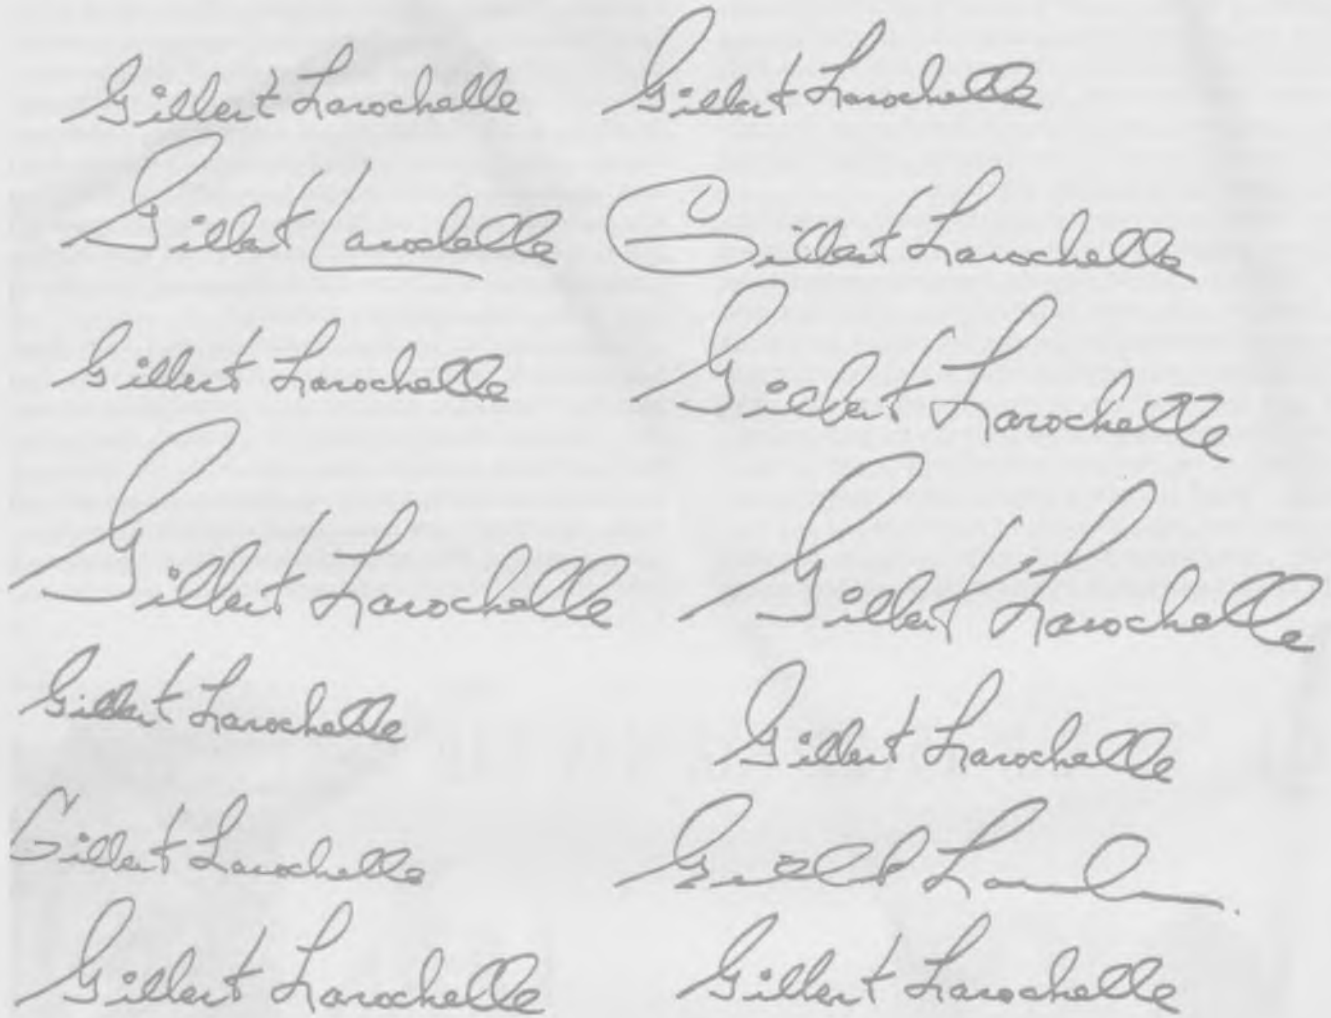 Gilbert Larochelle Gilbert Larochelle
Gilbert Larochelle Gilbert Larochelle
Gilbert Larochelle Gilbert Larochelle
Gilbert Larochelle Gilbert Larochelle
Gilbert Larochelle Gilbert Larochelle
Gilbert Larochelle
Gilbert Larochelle Gilbert Larochelle